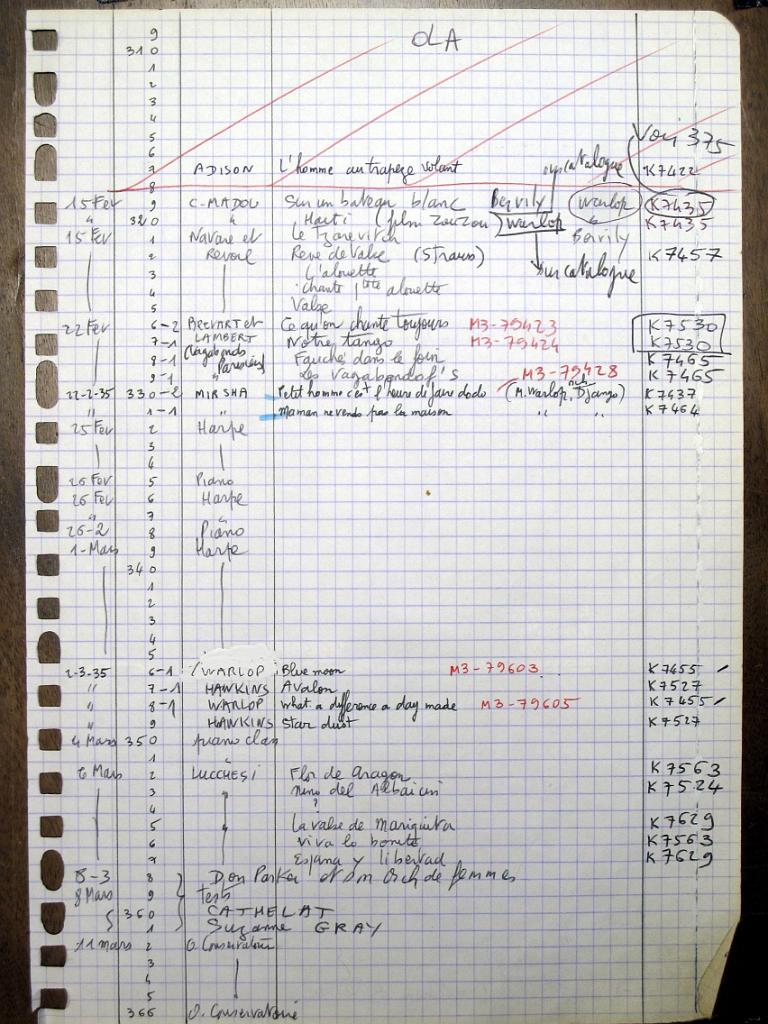 9 OLA
310
1
2
3
4
5 Voir 375
6 sur catalogue
7 ADISON L'homme au trapeze volant K7422
8
15 Fev 9 C-MADOU Sur un bateau blanc Bervily Warlop K7435
" 320 " Haïti (film Zouzou) Warlop " K7435
15 Fev 1 Navare et Le Tzarevitch Bervily
2 Revoil Reve de Valse (Strauss) K7457
3 L'alouette sur catalogue
4 chante alouette
5 Valse
22 Fev 6-2 BREVART et Ce qu'on chante toujours M3-79423 K7530
7-1 LAMBERT Notre tango M3-79424 K7530
8-1 (Vagabonds Fauché dans le foin K7465
9-1 Parisiens) Les Vagabonds M3-79428 K7465
22-2-35 330-2 MIRSHA Petit homme c'est l'heure de faire dodo (M. Warlop, Django) K7437
" 1-1 " Maman ne vends pas la maison " " K7464
25 Fev 2 Harpe
3
4
26 Fev 5 Piano
26 Fev 6 Harpe
" 7 "
26-2 8 Piano
1-Mars 9 Harpe
340
1
2
3
4
5
2-3-35 6-1 WARLOP Blue moon M3-79603 K7455
" 7-1 HAWKINS Avalon K7527
" 8-1 WARLOP What a difference a day made M3-79605 K7455
" 9 HAWKINS Star dust K7527
4 Mars 350 piano clas
1 "
6 Mars 2 LUCCHESI Flor de Aragon K7563
3 " nino del Albaicin K7524
4 ?
5 " La valse de Mariquita K7629
6 viva lo bonito K7563
7 Espana y libertad K7629
8-3 8 Don Parker et son Orch de femmes
8 Mars 9 Tests
360 CATHELAT
1 Suzanne GRAY
11 mars 2 O. Conservatoire
3
4
5
366 O. Conservatoire